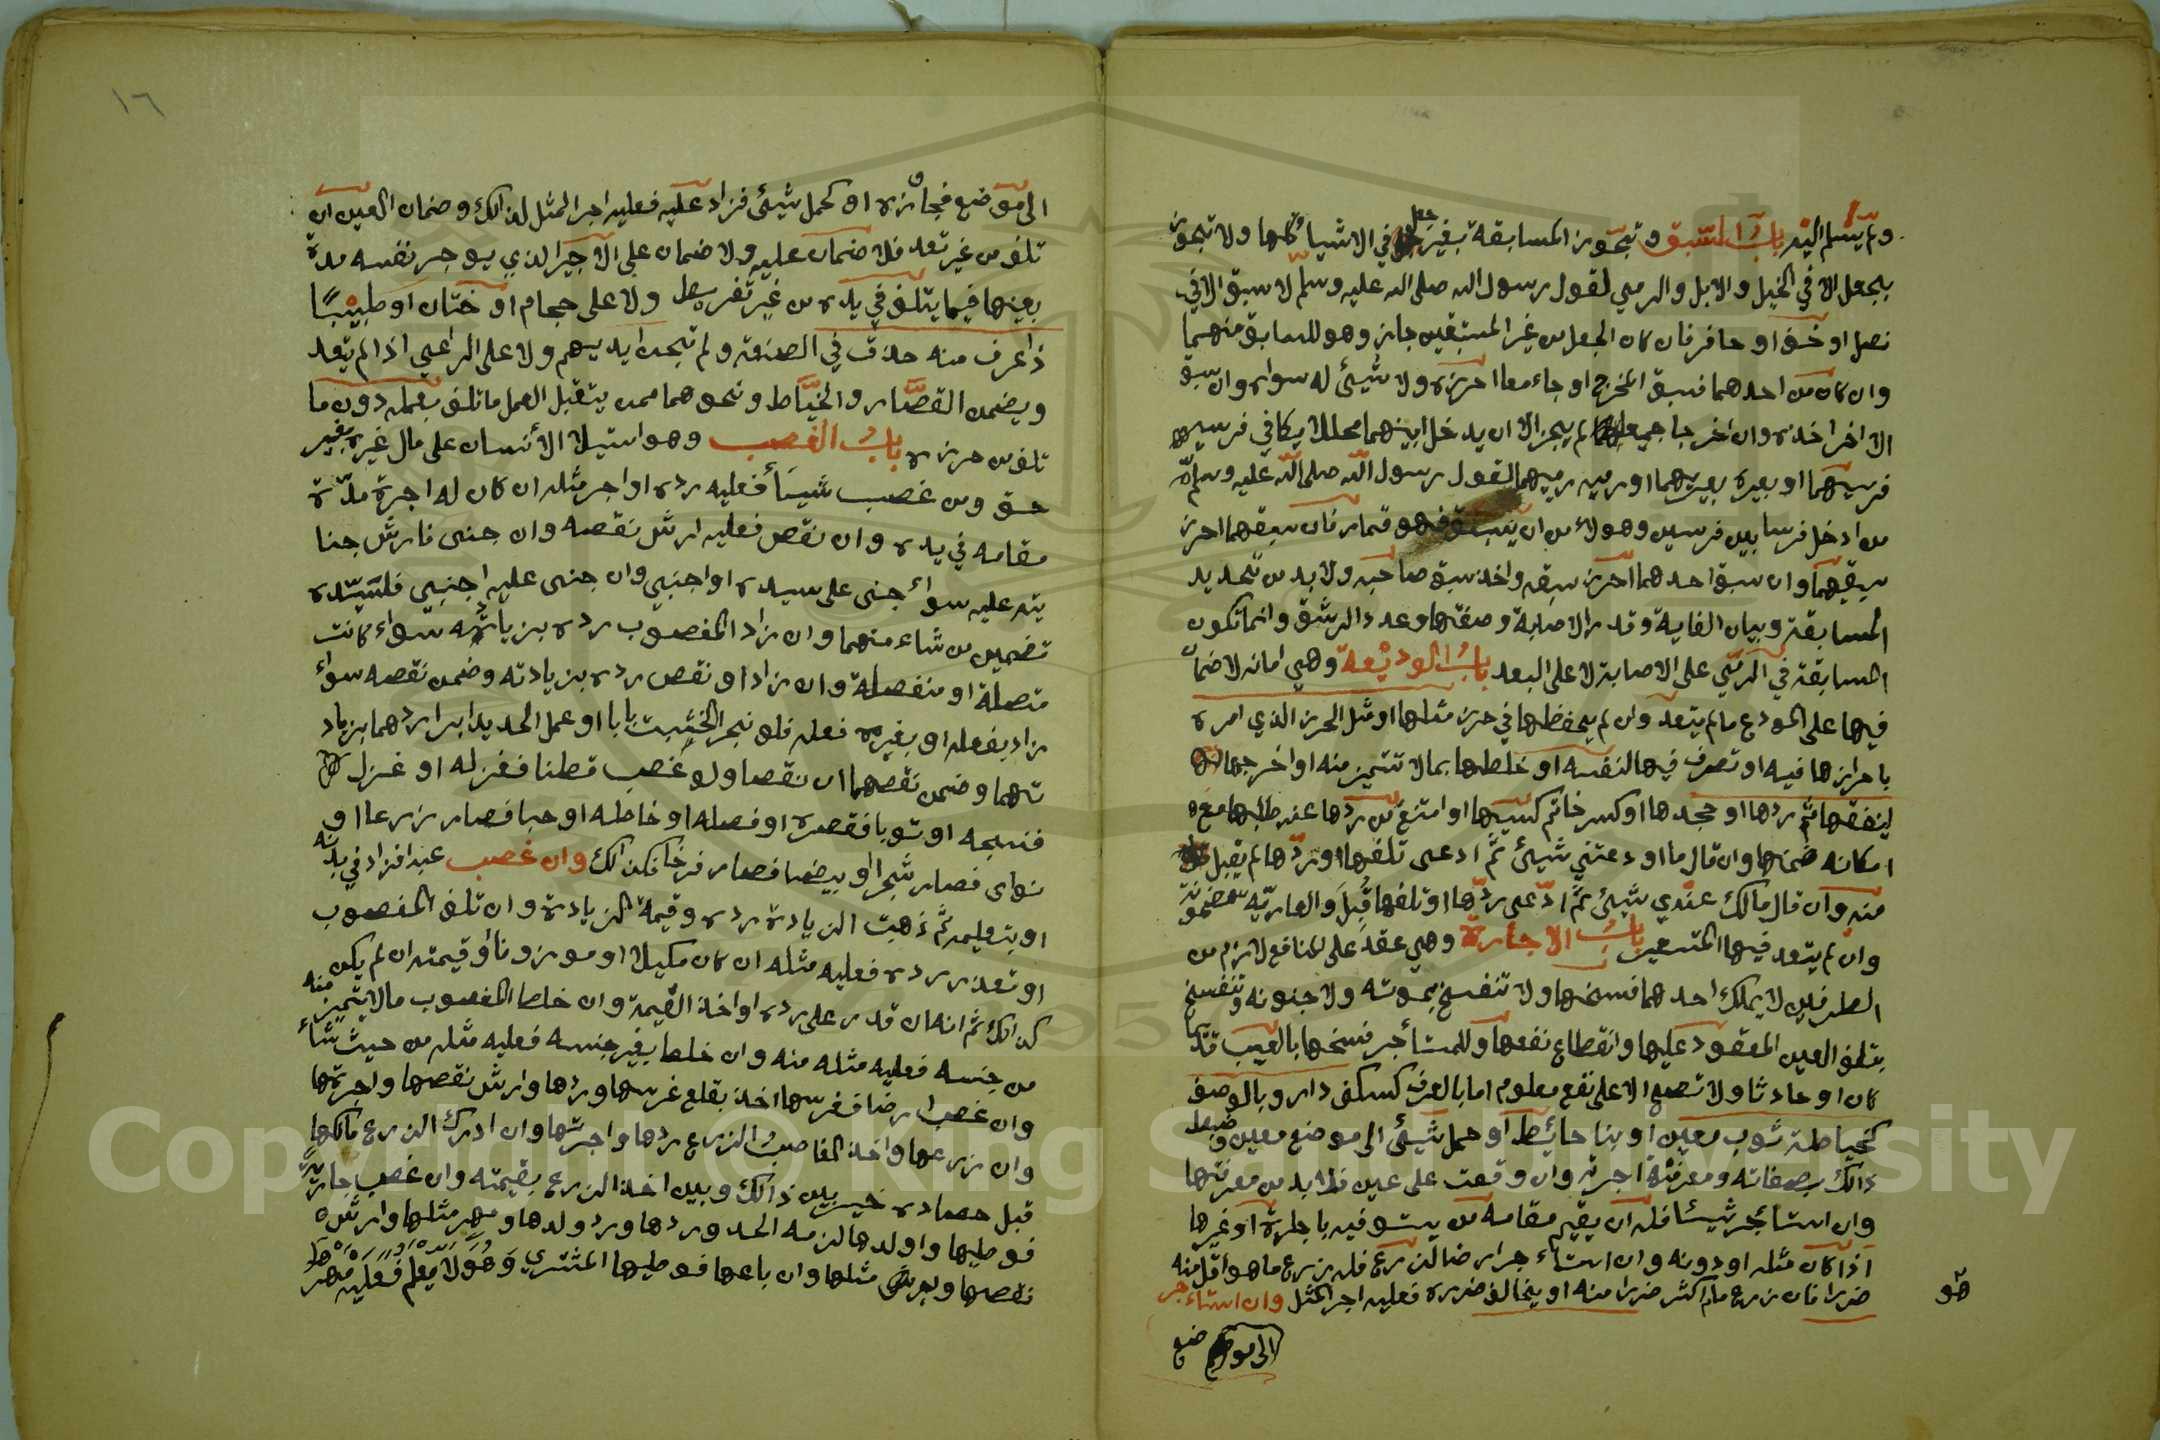 ولم يسلم اليه باب السبق وتجوز المسابقة بغير جعل في الاشيا كلها ولا تجوز
بجعل الا في الخيل والابل والرمي لقول رسول الله صلى الله عليه وسلم لا سبق الا في
نصل او خف او حافر فان كان الجعل من غير المستبقين جاز وهو للسابق منهما
وان كان من احدهما فسبق المخرج او جاء معا احرزه ولا شيئ له سواه وان سبق
الاخر اخذه وان اخرجا جميعا لم يجز الا ان يدخل بينهما محللا يكافي فرسه
فرسيهما او بعيره بعيريهما او رميه رميهما لقول رسول الله صلى الله عليه وسلم
من ادخل فرسا بين فرسين وهو لا من ان يسبق فهو قمار فان سبقهما احرز
سبقيهما وان سبق احدهما احرز سبقه واخذ سبق صاحبه ولا بد من تحديد
المسابقة وبيان الغاية وقدر الاصابة وصفتها وعدد الرشق وانما تكون
المسابقة في الرمي على الاصابة لا على البعد باب الوديعة وهي امانه لا ضمان
فيها على المودع ما لم يتعد وان لم يحفظها في حرز مثلها او مثل الحرز الذي امره
باحرازها فيه او تصرف فيها لنفسه او خلطها بما لا تتميز منه او اخرجها
لينفقها ثم ردها او جحدها او كسر ختم كيسها او امتنع من ردها عند طلبها مع
امكانه ضمنها وان قال ما اودعتني شيئ ثم ادعى تلفها او ردها لم يقبل
منه وان قال مالك عندي شيئ ثم ادعى ردها او تلفها قبل والعارية مضمونة
وان لم يتعد فيها المستعير باب الاجارة وهي عقد على المنافع لازم من
الطرفين لا يملك احدهما فسخها ولا تنفسخ بموته ولا جنونه وتنفسخ
بتلف العين المعقود عليها وانقطاع نفعها وللمستأجر فسخها بالعيب قديما
كان او حادثا ولا تصح الا على نفع معلوم اما بالعرف كسكنى دار وبالوصف
كخياطة ثوب معين او بنا حائيط او حمل شيئ الى موضع معين وضبط
ذالك بصفاته ومعرفة اجرته وان وقعت على عين فلا بد من معرفتها
وان استأجر شيئا فله ان يقيم مقامه من يستوفيه باجارة او غيرها
اذا كان مثله او دونه وان استاء جر ارضا لزرع فله زرع ما هو اقل منه
ضررا فان زرع ما اكثر ضررا منه او يخالف ضرره فعليه اجر المثل وان استاء جر
هو
الى موضع
١٦
الى موضع فجاوزه او لحمل شيئ فزاد عليه فعليه اجر المثل لذالك وضمان العين ان
تلف من غير تعد فلا ضمان عليه ولا ضمان على الاجير الذي يوجر نفسه مدة
بعينها فيما يتلف في يده من غير تفريط ولا على حجام او ختان او طبيبا
ذا عرف منه حذق في الصنعة ولم تجن ايديهم ولا على الراعي اذا لم يتعد
ويضمن القصار والخياط ونحوهما ممن يتقبل العمل ما تلف بعمله دون ما
تلف من حرزه باب الغصب وهو استيلا الأنسان على مال غيره بغير
حق ومن غصب شيئا فعليه رده او اجر مثله ان كان له اجرة مدة
مقامه في يده وان نقص فعليه ارش نقصه وان جنى فارش جنا
يته عليه سواء جنى على سيده او اجنبي وان جنى عليه اجنبي فلسيده
تضمين من شاء منهما وان زاد المغصوب رده بزيادته سواء كانت
متصلة او منفصلة وان زاد او نقص رده بزيادته وضمن نقصه سواء
زاد بفعله او بغير فعله فلو نجر الخشبة بابا او عمل الحديد ابرا ردهما بزياد
تهما وضمن نقصهما ان نقصا ولو غصب قطنا فغزله او غزل
فنسجه او ثوبا فقصره او فصله او خاطه او حبا فصار زرعا او
نواى فصار شجرا او بيضا فصار فرخا فكذالك وان غصب عبدا فزاد في بدنه
او بتعليمه ثم ذهبت الزيادة رده وقيمة الزيادة وان تلف المغصوب
او تعذر رده فعليه مثله ان كان مكيلا او موزونا او قيمته ان لم يكن
كذالك ثم انه ان قدر على رده او اخذ القيمة وان خلط المغصوب مالا يتميز منه
من جنسه فعليه مثله منه وان خلط بغير جنسه فعليه مثله من حيث شاء
وان غصب ارضا فغرسها اخذ بقلع غرسها وردها وارش نقصها واجرتها
وان زرعها واخذ الغاصب الزرع ردها واجرتها وان ادرك الزرع مالكها
قبل حصاده خير بين ذالك وبين اخذ الزرع بقيمته وان غصب جارية
فوطيها واولدها لزمه الحد وردها ورد ولدها ومهر مثلها وارش
نقصها وأجرة مثلها وان باعها فوطيها المشتري وهو لا يعلم فعليه مهرها